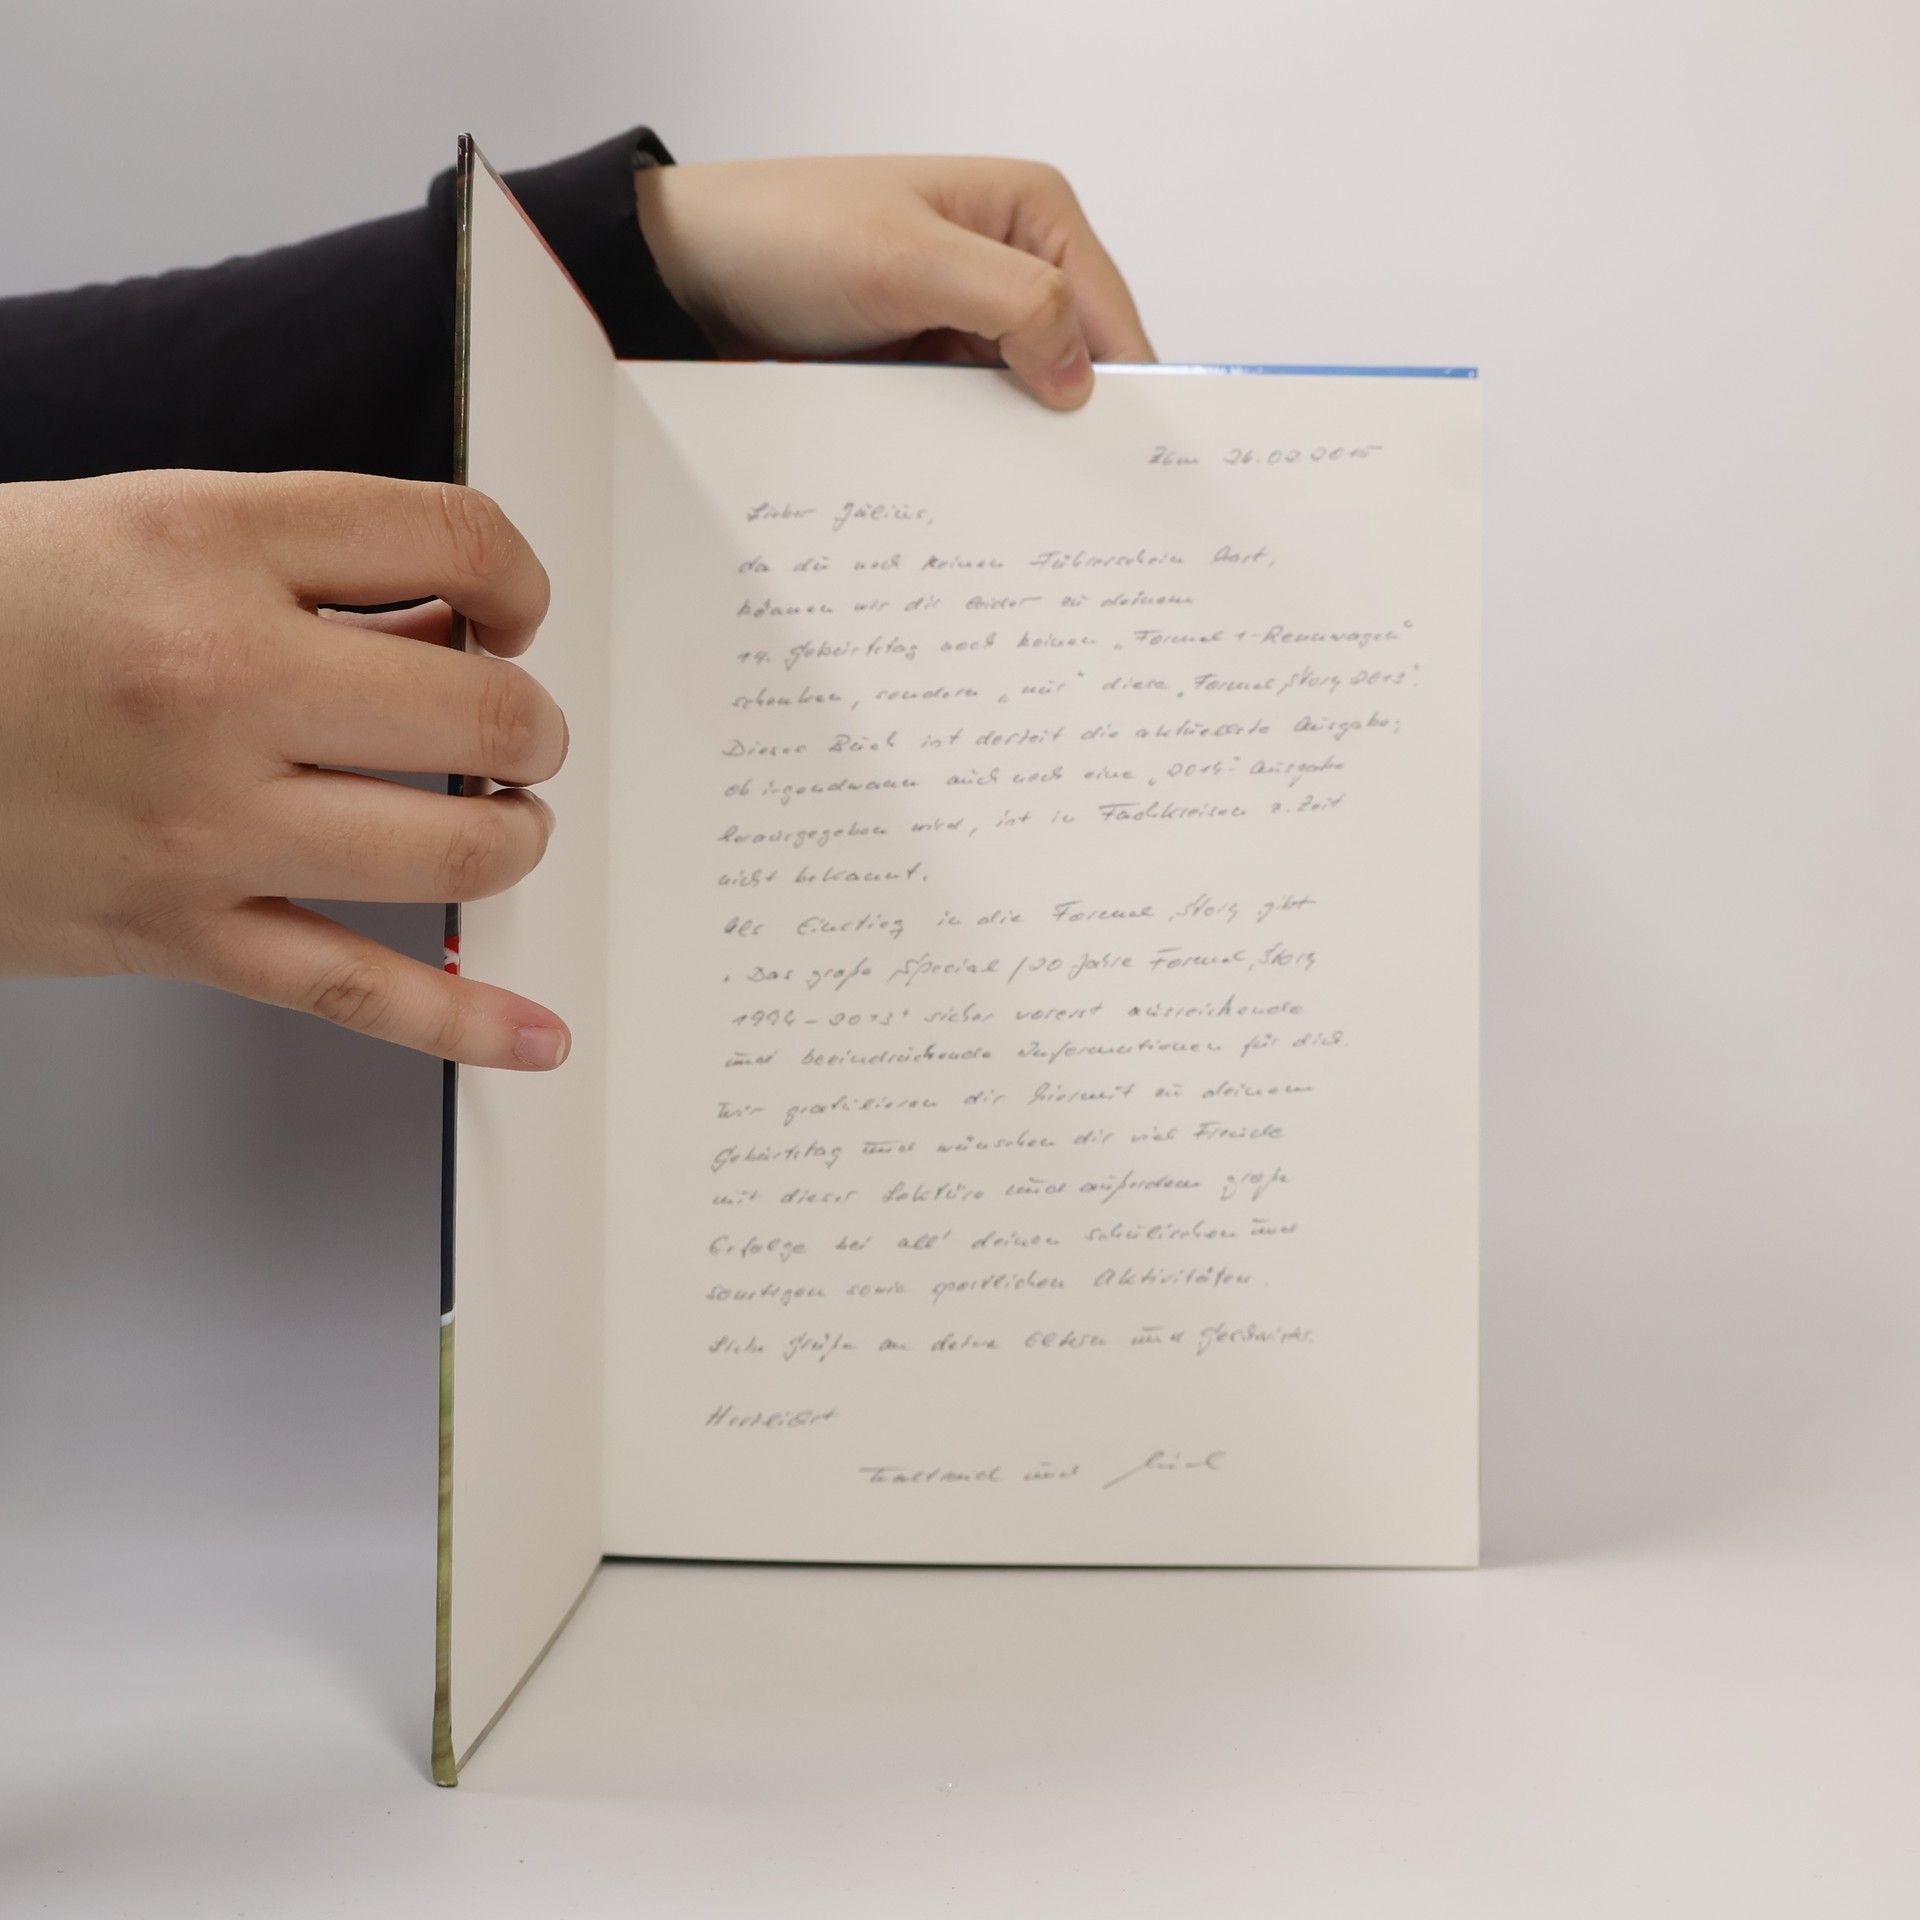 Zum 26.02.2015
Lieber Julius,
da du noch keinen Führerschein hast,
können wir dir leider zu deinem
14. Geburtstag noch keinen „Formel 1-Rennwagen“
schenken, sondern „nur“ diese „Formel Story 2013“.
Dieses Buch ist derzeit die aktuellste Ausgabe;
ob irgendwann auch noch eine „2014“-Ausgabe
herausgegeben wird, ist in Fachkreisen z. Zeit
nicht bekannt.
Als Einstieg in die Formel Story gibt
„Das große Special / 20 Jahre Formel Story
1994 – 2013“ sicher vorerst ausreichende
und beeindruckende Informationen für dich.
Wir gratulieren dir hiermit zu deinem
Geburtstag und wünschen dir viel Freude
mit dieser Lektüre und außerdem große
Erfolge bei all' deinen schulischen und
sonstigen sowie sportlichen Aktivitäten.
Liebe Grüße an deine Eltern und Geschwister.
Herzlichst
Waltraud und